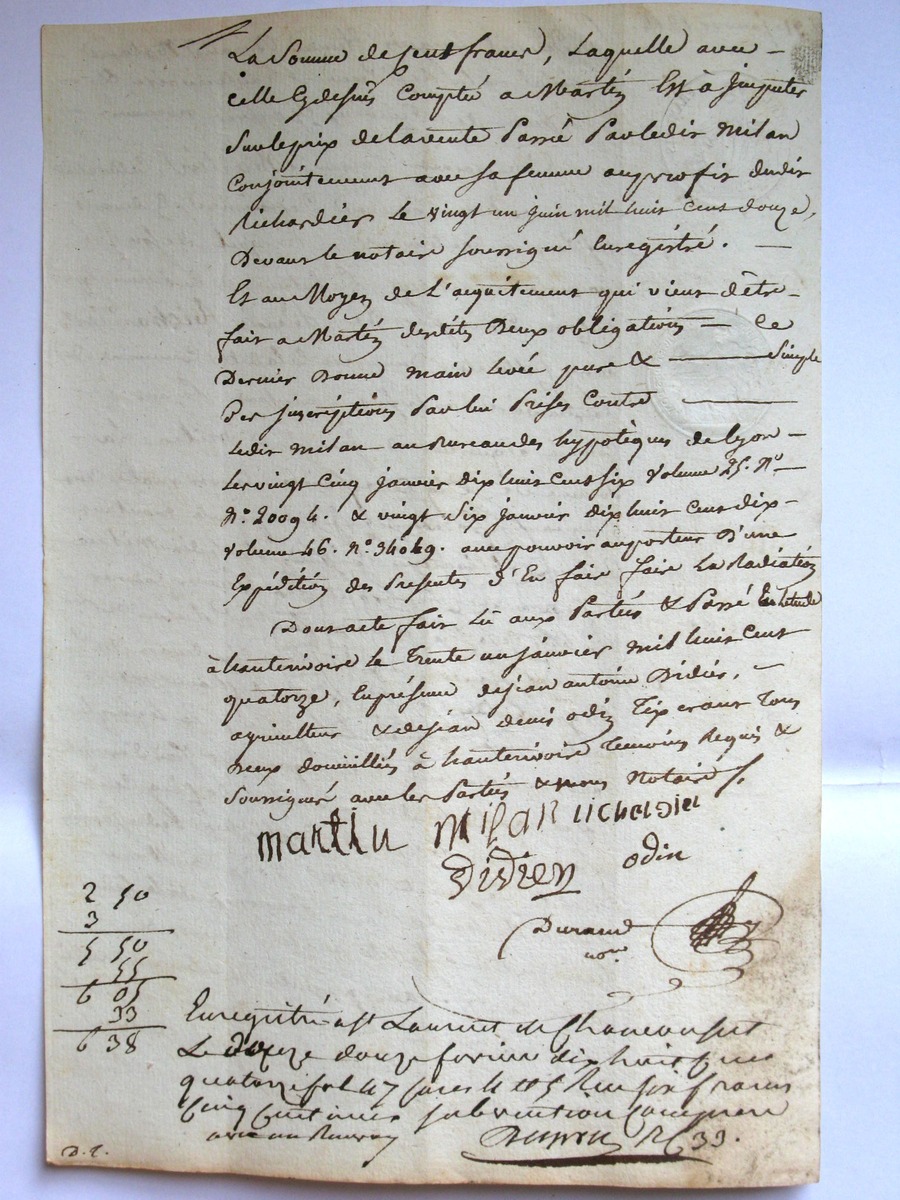 La Somme de sent francs, Laquelle avec
celle Cydessus Comptée a Martin Est à Jmputer
Surleprix delavente Passé Parledit Milan
Conjointement avec sa femme auproffit dudit
Richardier Le vingt un juin mil huit Cent douze,
Devant le notaire soussigné Enregistré.
Et au Moyen de L'aquitement qui vient d'être
fait a Martin desdites Deux obligations Ce
Dernier Donne main levée pure & Simple
Des jnscriptions Par lui Prises Contre
Ledit Milan au Bureau des hypotèques de lyon
Levingt Cinq janvier dix huit Cent six Volume 25. No
No. 20094. & vingt Six janvier dix huit Cent dix
Volume 46. No. 34049. avec pouvoir au porteur D'une
Expédition des Presentes d'En faire faire La Radiation
Dont acte fait Lu aux Parties & Passé En Letude
à hauterivoire le Trente un janvier mil huit Cent
quatorze, En présence de jean antoine Didier,
agriculteur & de jean denis odin Tixerant Tous
Deux domicilliés à hauterivoire Temoins Requis &
Soussignés avec les Parties & nous Notaire
martin milan richardier
Didier odin
Durand
nore
2 50
3
5 50
55
6 05
33
6 38
Enregistré a St Laurent de Chamousset
Le douze fevrier dix huit Cent
quatorze fol 47 Cases 4 et 5 Reçu six francs
Cinq Centimes subvention Comprise
33.
D. L.